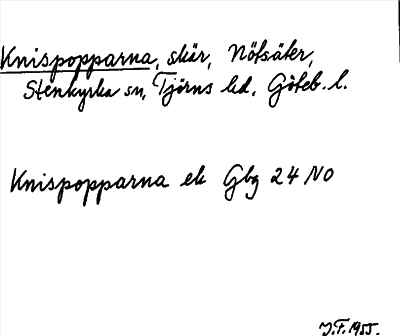 Knispopparna, skär, Nötsäter,
Stenkyrka sn, Tjörns hd, Göteb. l.
Knispopparna ek Gbg 24 NO
J.F. 1955.